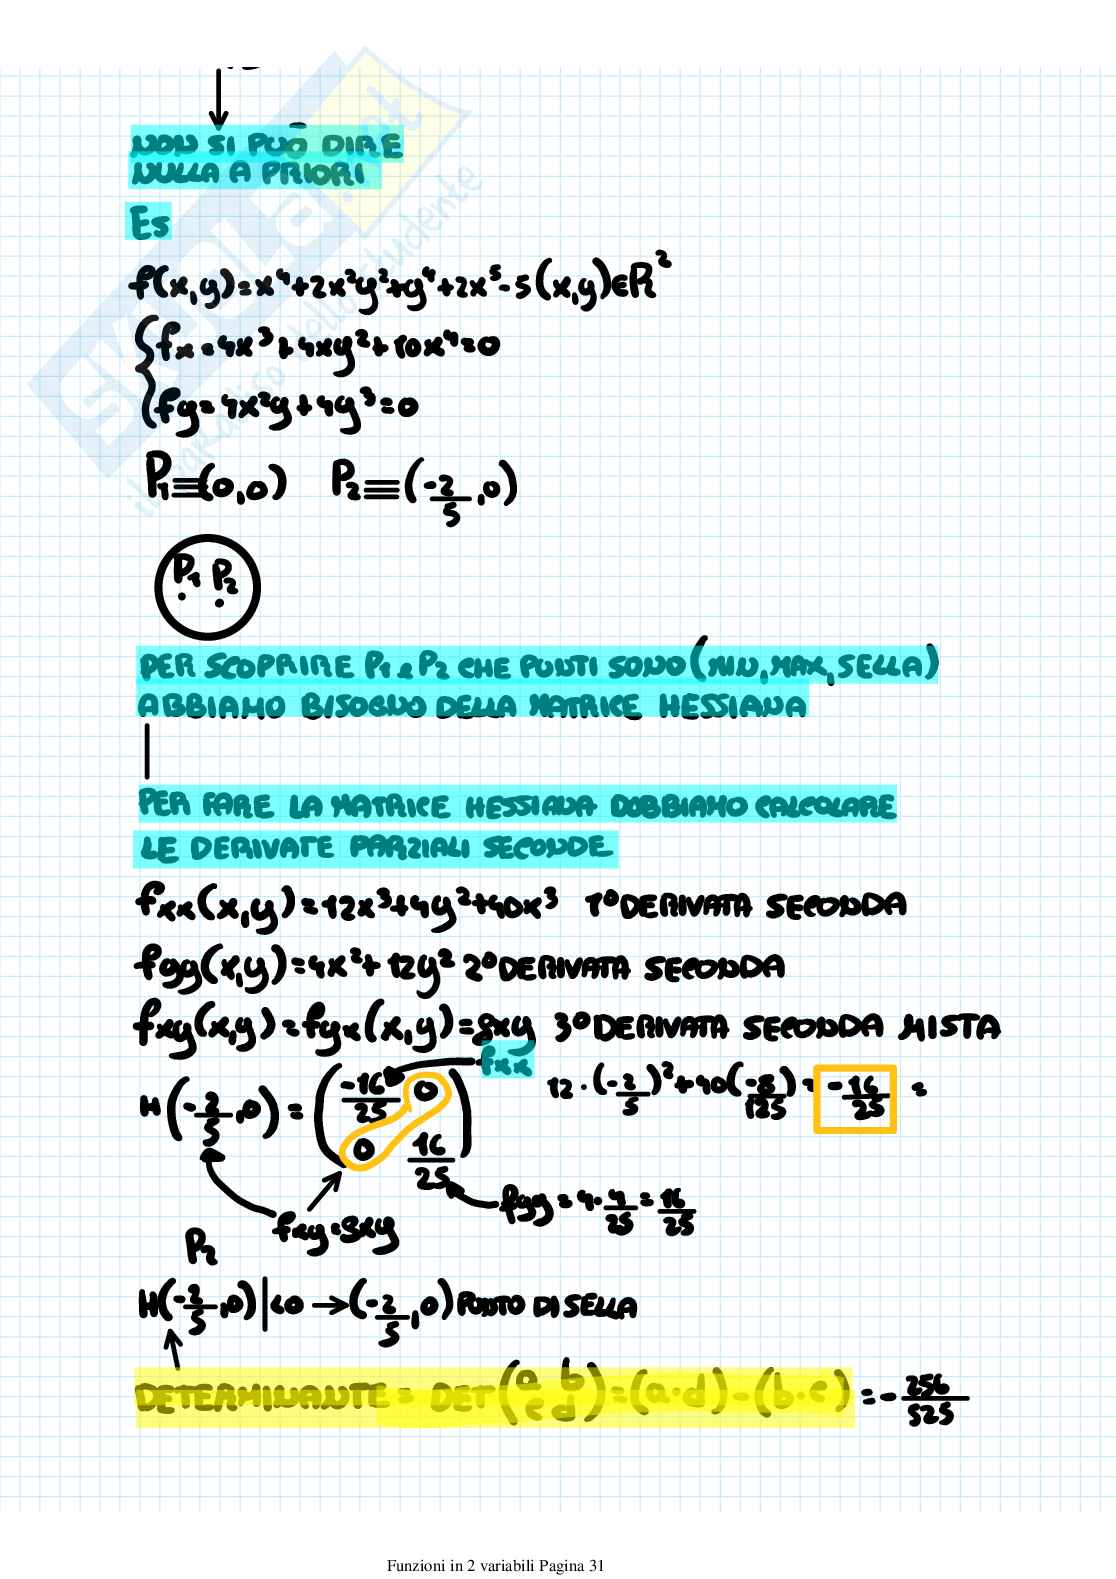 NON SI PUÒ DIRE
NULLA A PRIORI
Es
f(x,y)=x⁴+2x²y²+y⁴+2x⁵-5 (x,y)∈R²
{fx=4x³+4xy²+10x⁴=0
{fy=4x²y+4y³=0
P₁≡(0,0) P₂≡(-2/5,0)
P₁ P₂
PER SCOPRIRE P₁ e P₂ CHE PUNTI SONO (MIN,MAX,SELLA)
ABBIAMO BISOGNO DELLA MATRICE HESSIANA
PER FARE LA MATRICE HESSIANA DOBBIAMO CALCOLARE
LE DERIVATE PARZIALI SECONDE
fxx(x,y)=12x³+4y²+40x³ 1° DERIVATA SECONDA
fyy(x,y)=4x²+12y² 2° DERIVATA SECONDA
fxy(x,y)=fyx(x,y)=8xy 3° DERIVATA SECONDA MISTA
fxx
H(-2/5,0)=(-16/25 0 0 16/25) 12·(-2/5)²+40(-8/125)=-16/25=
fyy=4·4/25=16/25
fxy=8xy
P₂
H(-2/5,0)|<0 →(-2/5,0) PUNTO DI SELLA
DETERMINANTE = DET(a b c d)=(a·d)-(b·c)=-256/525
Funzioni in 2 variabili Pagina 31